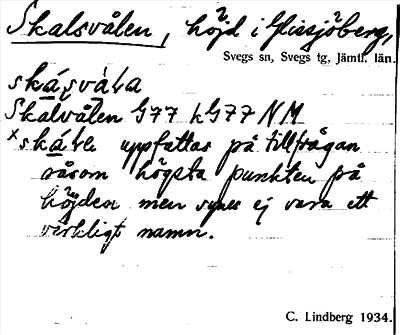 Skalsvålen, höjd i Glissjöberg,
Svegs sn, Svegs tg, Jämtl. län.
skásvàła
Skålvålen G77 kG77 NM
×skáłe uppfattas på tillfrågan
såsom högsta punkten på
höjden men synes ej vara ett
verkligt namn.
C. Lindberg 1934.